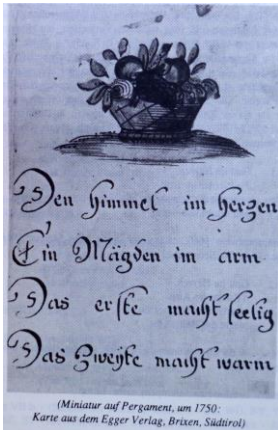 Den Himmel im Herzen
Ein Mägden im arm
Das erste macht seelig
Das Zweyte macht warm
(Miniatur auf Pergament, um 1750:
Karte aus dem Egger Verlag, Brixen, Südtirol)